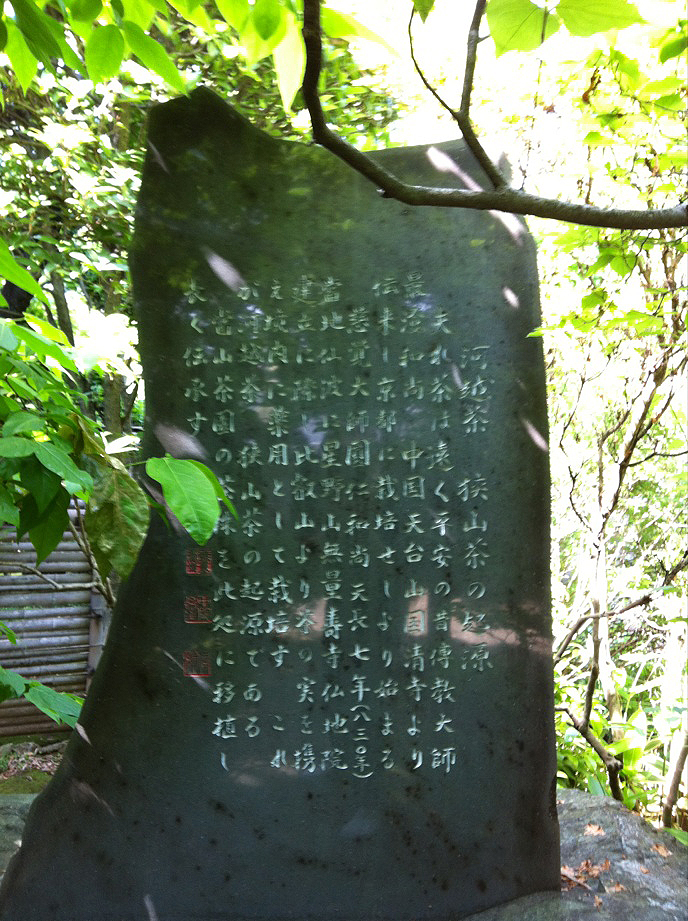 河越茶 狭山茶の起源
夫れ茶は遠く平安の昔傳教大師
最澄和尚 中国天台山国清寺より
伝来し京都に栽培せしより始まる
慈覚大師圓仁和尚天長七年(八三〇年)
當地仙波に星野山無量壽寺仏地院
建立に際し比叡山より茶の実を携
え境内に薬用として栽培す これ
が河越茶 狭山茶の起源である
當山茶園の茶株を此処に移植し
永く伝承す